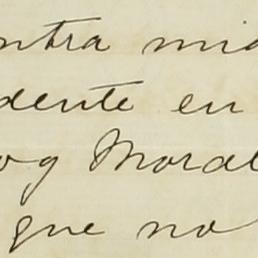 ntra mia
dente en
og Moral
que no